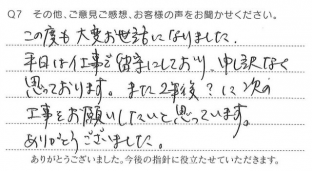 Q7 その他、ご意見ご感想、お客様の声をお聞かせください。
この度も大変お世話になりました。
平日は仕事で留守にしており、申し訳なく
思っております。また2年後?に次の
工事をお願いしたいと思っています。
ありがとうございました。
ありがとうございました。今後の指針に役立たせていただきます。